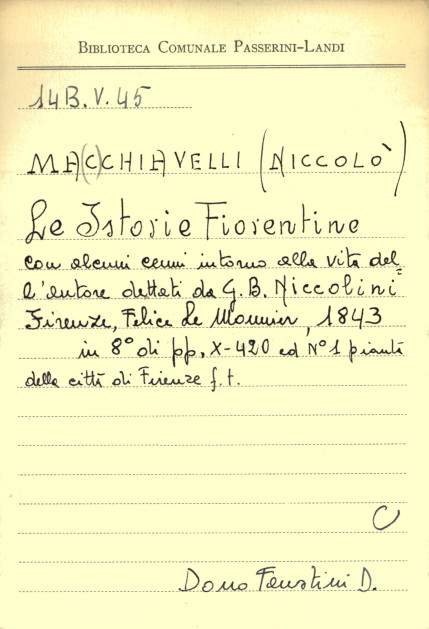 BIBLIOTECA COMUNALE PASSERINI-LANDI
14B.V.45
MA(C)CHIAVELLI (NICCOLÒ)
Le Istorie Fiorentine
con alcuni cenni intorno alla vita del=
l'autore dettati da G. B. Niccolini
Firenze, Felice Le Monnier, 1843
in 8° di pp. X-420 ed N° 1 pianta
della città di Firenze f. t.
C
Dono Faustini D.